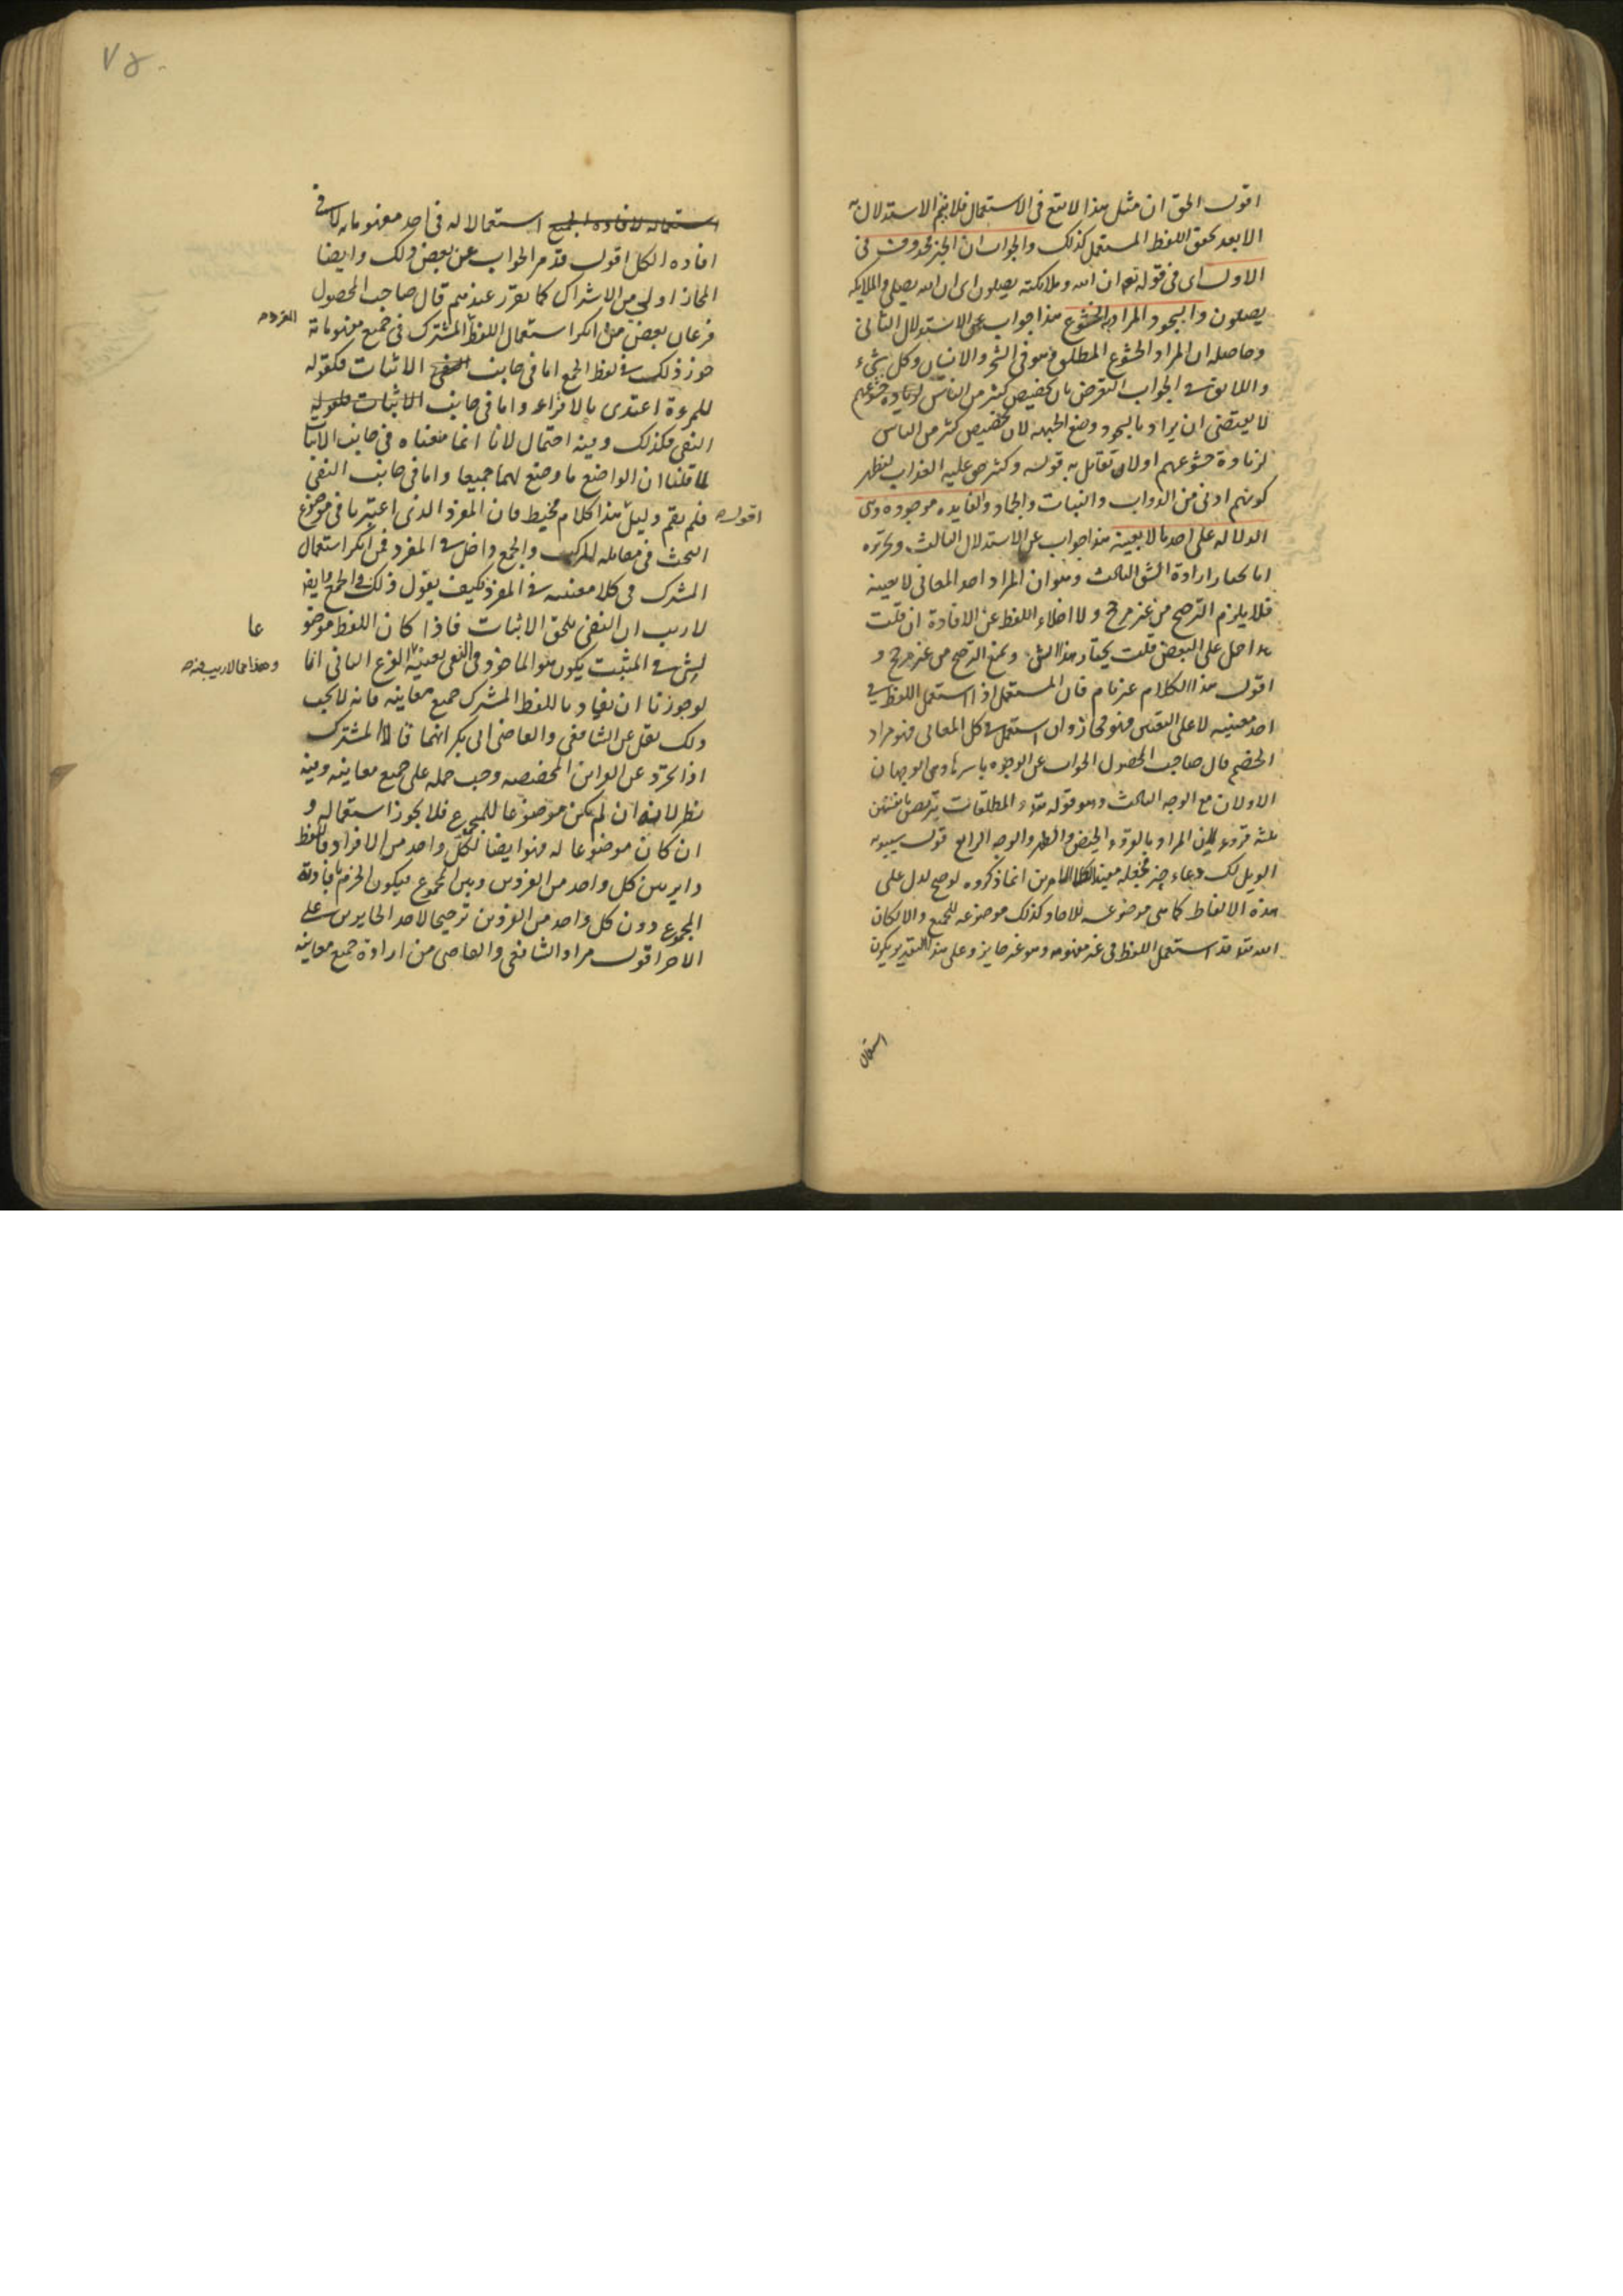 اقول الحق ان مثل هذا لامتنع فى الاستعمال فلا يتم الاستدلال به
الا بعد تحقق اللفظ المستعمل كذلك والجواب ان الخبر محذوف فى
الاول اى فى قوله تع ان الله وملائكته يصلون اى ان الله يصلى والملايكه
يصلون والسجود المراد به الخشوع هذا جواب عن الاستدلال الثانى
وحاصله ان المراد الخشوع المطلق وهو فى الشجر والانسان وكل شىء
واللايق فى الجواب التعرض بان تخصيص كثير من الناس لزيادة خشوعهم
لا يقتضى ان يراد بالسجود وضع الجبهه لان تخصيص كثير من الناس
لزيادة خشوعهم اولان تقابل به قوله وكثير حق عليه العذاب ليظهر
كونهم ادنى من الدواب والنبات والجماد والفايده موجوده وهى
الدلاله على احدها لا بعينه هذا جواب عن الاستدلال الثالث وتحريره
انا نختار ارادة الشق الثالث وهو ان المراد احد المعانى لا بعينه
فلا يلزم الترجيح من غير مرجح ولا اخلاء اللفظ عن الافادة ان قلت
احمل على البعض قلت يختار هذا الشق ونمنع الترجيح من غير مرجح و
اقول هذا الكلام غير تام فان المستعمل اذا استعمل اللفظ فى
احد معنييه لا على التعيين فهو مجاز وان استعمل فى كل المعانى فهو مراد
الخصم قال صاحب المحصول الجواب عن الوجوه باسرها وهى الوجهان
الاولان مع الوجه الثالث وهو قوله تع والمطلقات يتربصن بانفسهن
ثلثه قروء المراد بالقروء الحيض والطهر والوجه الرابع قول سيبويه
الويل لك دعاء وخبر فجعله مفيدا لكلا الامرين انما ذكروه لو صح لدل على
هذه الالفاظ كما هى موضوعه للاحاد كذلك موضوعه للجمع والا لكان
الله تع قد استعمل اللفظ فى غير مفهومه وهو غير جايز وعلى هذا التقدير يكون
استعمال
استعماله لافاده الجميع استعمالا له فى احد مفهوماته لا فى
افاده الكل اقول قد مر الجواب عن بعض ذلك وايضا
المجاز اولى من الاشتراك كما تقرر عندهم قال صاحب المحصول
فرعان بعض من انكر استعمال اللفظ المشترك فى جميع مفهوماته
جوز ذلك فى لفظ الجمع اما فى جانب الاثبات فكقوله
للمرءة اعتدى بالاقراء واما فى جانب الاثبات فكقوله
النفى فكذلك وفيه احتمال لانا انما منعناه فى جانب الاثبا
لما قلنا ان الواضع ما وضع لهما جميعا واما فى جانب النفى
فلم يقم دليل هذا كلام مخيط فان المفرد الذى اعتبرها فى موضوع
اقول
البحث فى مقابله المركب والجمع داخل فى المفرد فمن انكر استعمال
المشترك فى كلا معنييه فى المفرد كيف يقول ذلك فى الجمع وايضا
لا ريب ان النفى يلحق الاثبات فاذا كان اللفظ موضو
عا
لشىء فى المثبت يكون هو الماخوذ فى النفى بعينه الفرع الثانى انا
وهذا مما لا ريب فيه
لو جوزنا ان يفاد باللفظ المشترك جميع معانيه فانه لا يجب
ذلك نقل عن الشافعى والقاضى ابى بكر انهما قالا المشترك
اذا تجرد عن القراين المخصصه وجب حمله على جميع معانيه وفيه
نظر لانه ان لم يكن موضوعا للمجموع فلا يجوز استعماله و
ان كان موضوعا له فهو ايضا لكل واحد من الافراد فاللفظ
داير بين كل واحد من الفردين وبين المجموع فيكون الجزم بافادته
المجموع دون كل واحد من الفردين ترجيحا لاحد الجايزين على
الاخر اقول مراد الشافعى والقاضى من ارادة جميع معانيه